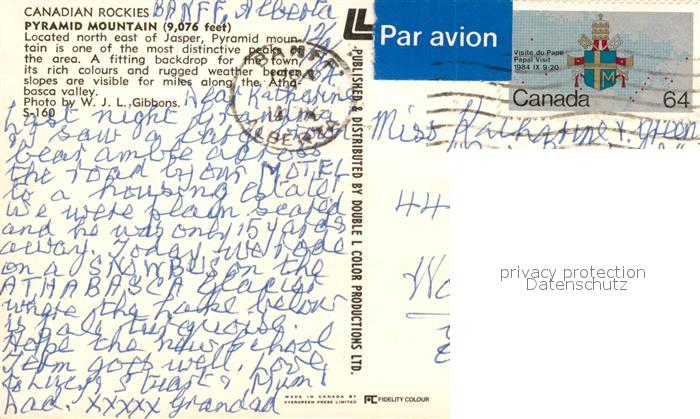 CANADIAN ROCKIES
PYRAMID MOUNTAIN (9,076 feet)
Located north east of Jasper, Pyramid moun-
tain is one of the most distinctive peaks of
the area. A fitting backdrop for the town,
its rich colours and rugged weather beaten
slopes are visible for miles along the Atha-
basca valley.
Photo by W. J. L. Gibbons.
S-160
BANFF, Alberta
Dear Katharine
Last night Grandma
& I saw a large
bear amble across
the road by our MOTEL
to a housing estate
we were plain scared
and he was only 15 yards
away. Today we rode
on a SNOWBUS on the
ATHABASCA Glacier
where the lake below
is pale turquoise.
Hope the new school
term goes well. Love
to Lucy, Stuart & Mum
& Dad. XXXXX Grandad
LL
PUBLISHED & DISTRIBUTED BY DOUBLE L COLOR PRODUCTIONS LTD.
MADE IN CANADA BY
EVERGREEN PRESS LIMITED
FIDELITY COLOUR
Par avion
Visite du Pape
Papal Visit
1984 IX 9-20
Canada 64
BANFF
ALBERTA
Miss Katharine Green
44
privacy protection
Datenschutz